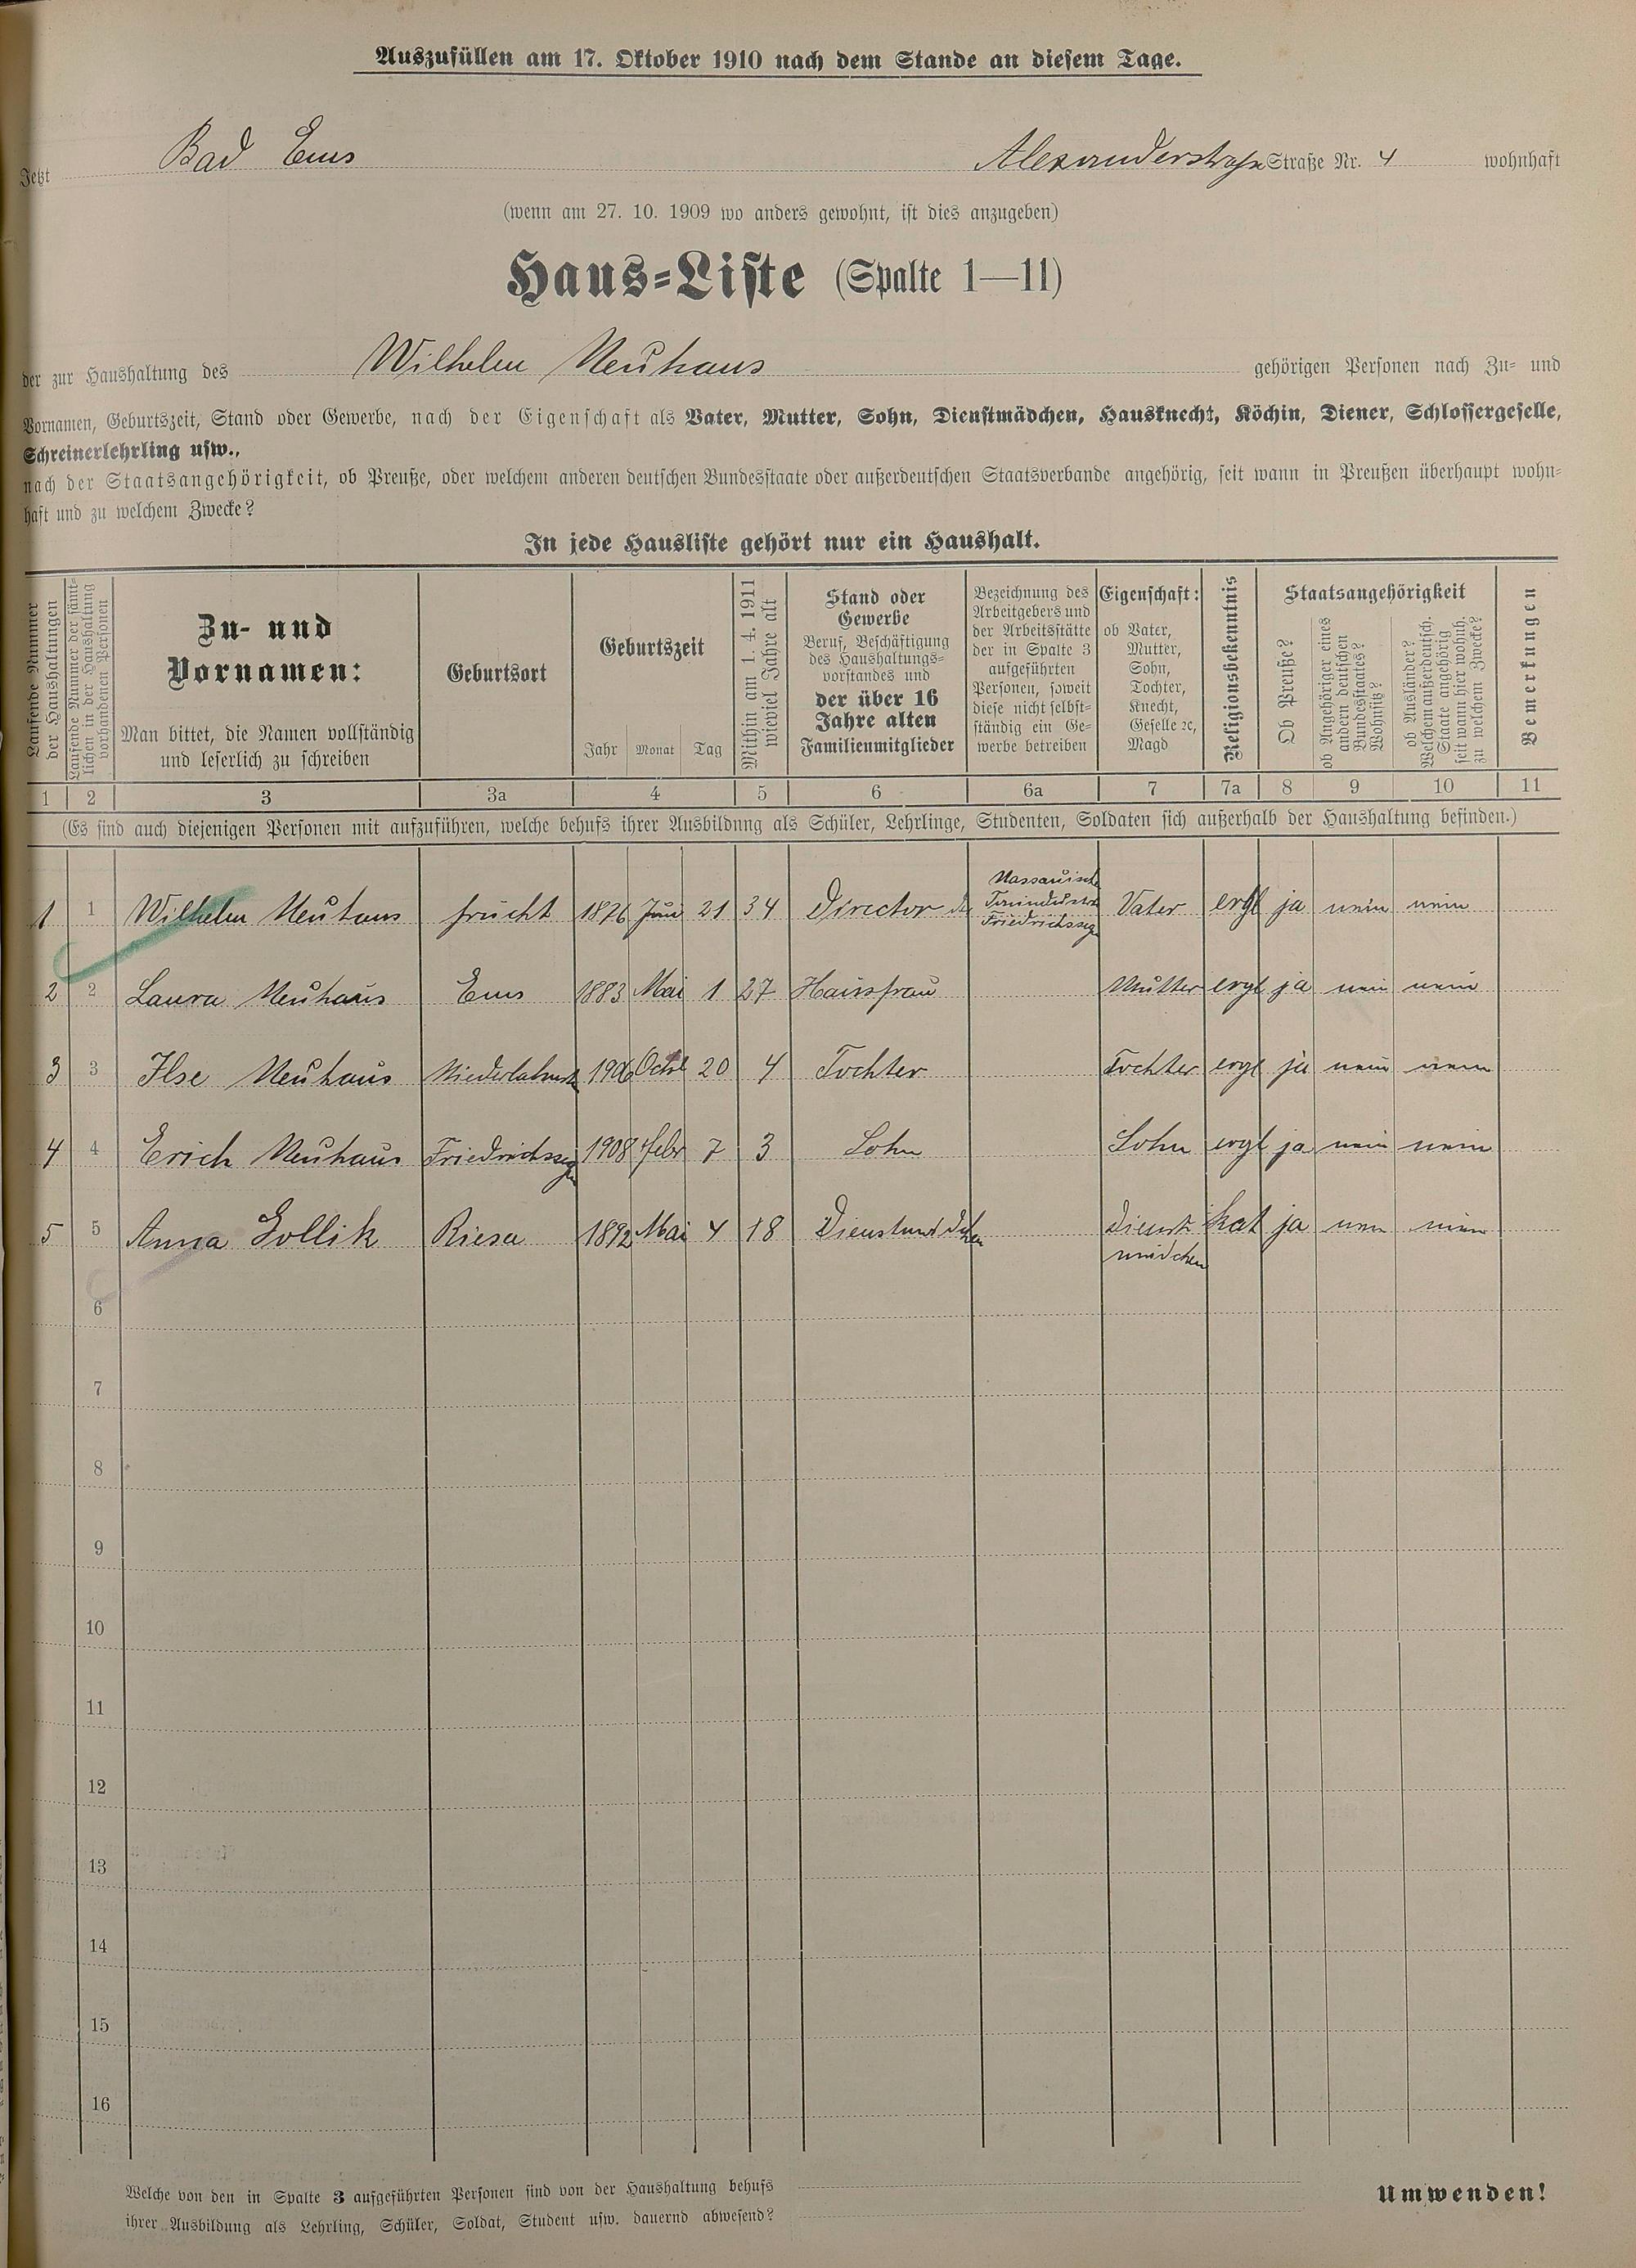 Auszufüllen am 17. Oktober 1910 nach dem Stande an diesem Tage.
Jetzt Bad Ems Alexanderstraße Straße Nr. 4 wohnhaft
(wenn am 27. 10. 1909 wo anders gewohnt, ist dies anzugeben)
Haus-Liste (Spalte 1—11)
der zur Haushaltung des Wilhelm Neuhaus gehörigen Personen nach Zu- und
Vornamen, Geburtszeit, Stand oder Gewerbe, nach der Eigenschaft als Vater, Mutter, Sohn, Dienstmädchen, Hausknecht, Köchin, Diener, Schlossergeselle,
Schreinerlehrling usw.,
nach der Staatsangehörigkeit, ob Preuße, oder welchem anderen deutschen Bundesstaate oder außerdeutschen Staatsverbande angehörig, seit wann in Preußen überhaupt wohn-
haft und zu welchem Zwecke?
In jede Hausliste gehört nur ein Haushalt.
Laufende Nummer
der Haushaltungen
Laufende Nummer der sämt-
lichen in der Haushaltung
vorhandenen Personen
Zu- und
Vornamen:
Man bittet, die Namen vollständig
und leserlich zu schreiben
Geburtsort
Geburtszeit
Jahr Monat Tag
Mithin am 1. 4. 1911
wieviel Jahre alt
Stand oder
Gewerbe
Beruf, Beschäftigung
des Haushaltungs-
vorstandes und
der über 16
Jahre alten
Familienmitglieder
Bezeichnung des
Arbeitgebers und
der Arbeitsstätte
der in Spalte 3
aufgeführten
Personen, soweit
diese nicht selbst-
ständig ein Ge-
werbe betreiben
Eigenschaft:
ob Vater,
Mutter,
Sohn,
Tochter,
Knecht,
Geselle ꝛc,
Magd
Religionsbekenntnis
Staatsangehörigkeit
Ob Preuße?
ob Angehöriger eines
andern deutschen
Bundesstaates?
Wohnsitz?
ob Ausländer?
Welchem außerdeutsch.
Staate angehörig
seit wann hier wohnh.
zu welchem Zwecke?
Bemerkungen
1 2 3 3a 4 5 6 6a 7 7a 8 9 10 11
(Es sind auch diejenigen Personen mit aufzuführen, welche behufs ihrer Ausbildung als Schüler, Lehrlinge, Studenten, Soldaten sich außerhalb der Haushaltung befinden.)
1 1 Wilhelm Neuhaus Frücht 1876 Juni 21 34 Director der Nassauische Friedrichssegen Vater evgl ja nein nein
2 2 Laura Neuhaus Ems 1883 Mai 1 27 Hausfrau Mutter evgl ja nein nein
3 3 Ilse Neuhaus Niederlahnstein 1906 Octb 20 4 Tochter Tochter evgl ja nein nein
4 4 Erich Neuhaus Friedrichssegen 1908 Febr 7 3 Sohn Sohn evgl ja nein nein
5 5 Anna Gollik Riesa 1892 Mai 4 18 Dienstmädchen Dienst-
mädchen kat ja nein nein
6
7
8
9
10
11
12
13
14
15
16
Welche von den in Spalte 3 aufgeführten Personen sind von der Haushaltung behufs
ihrer Ausbildung als Lehrling, Schüler, Soldat, Student usw. dauernd abwesend?
Umwenden!